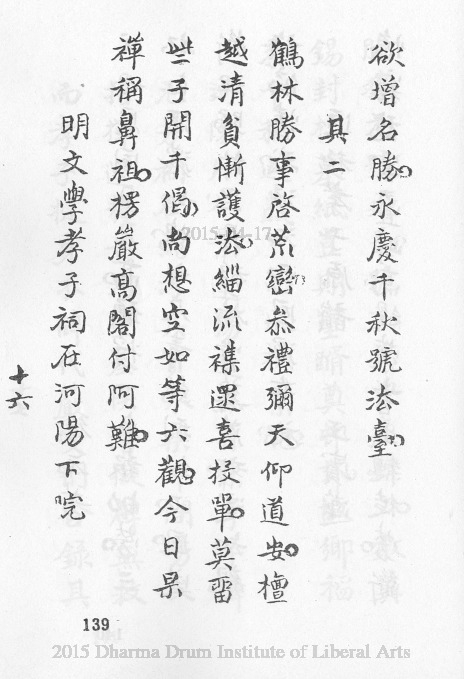 欲增名勝永慶千秋號法臺
其二
鶴林勝事啓荒巒叅禮彌天仰道安檀
越清貧慚護法緇流襍遝喜投單莫畱
些子開千偈尚想空如等六觀今日杲
禪稱鼻祖楞嚴高閣付阿難
明文學孝子祠在河陽下浣
十六
139
2015-04-17
2015 Dharma Drum Institute of Liberal Arts